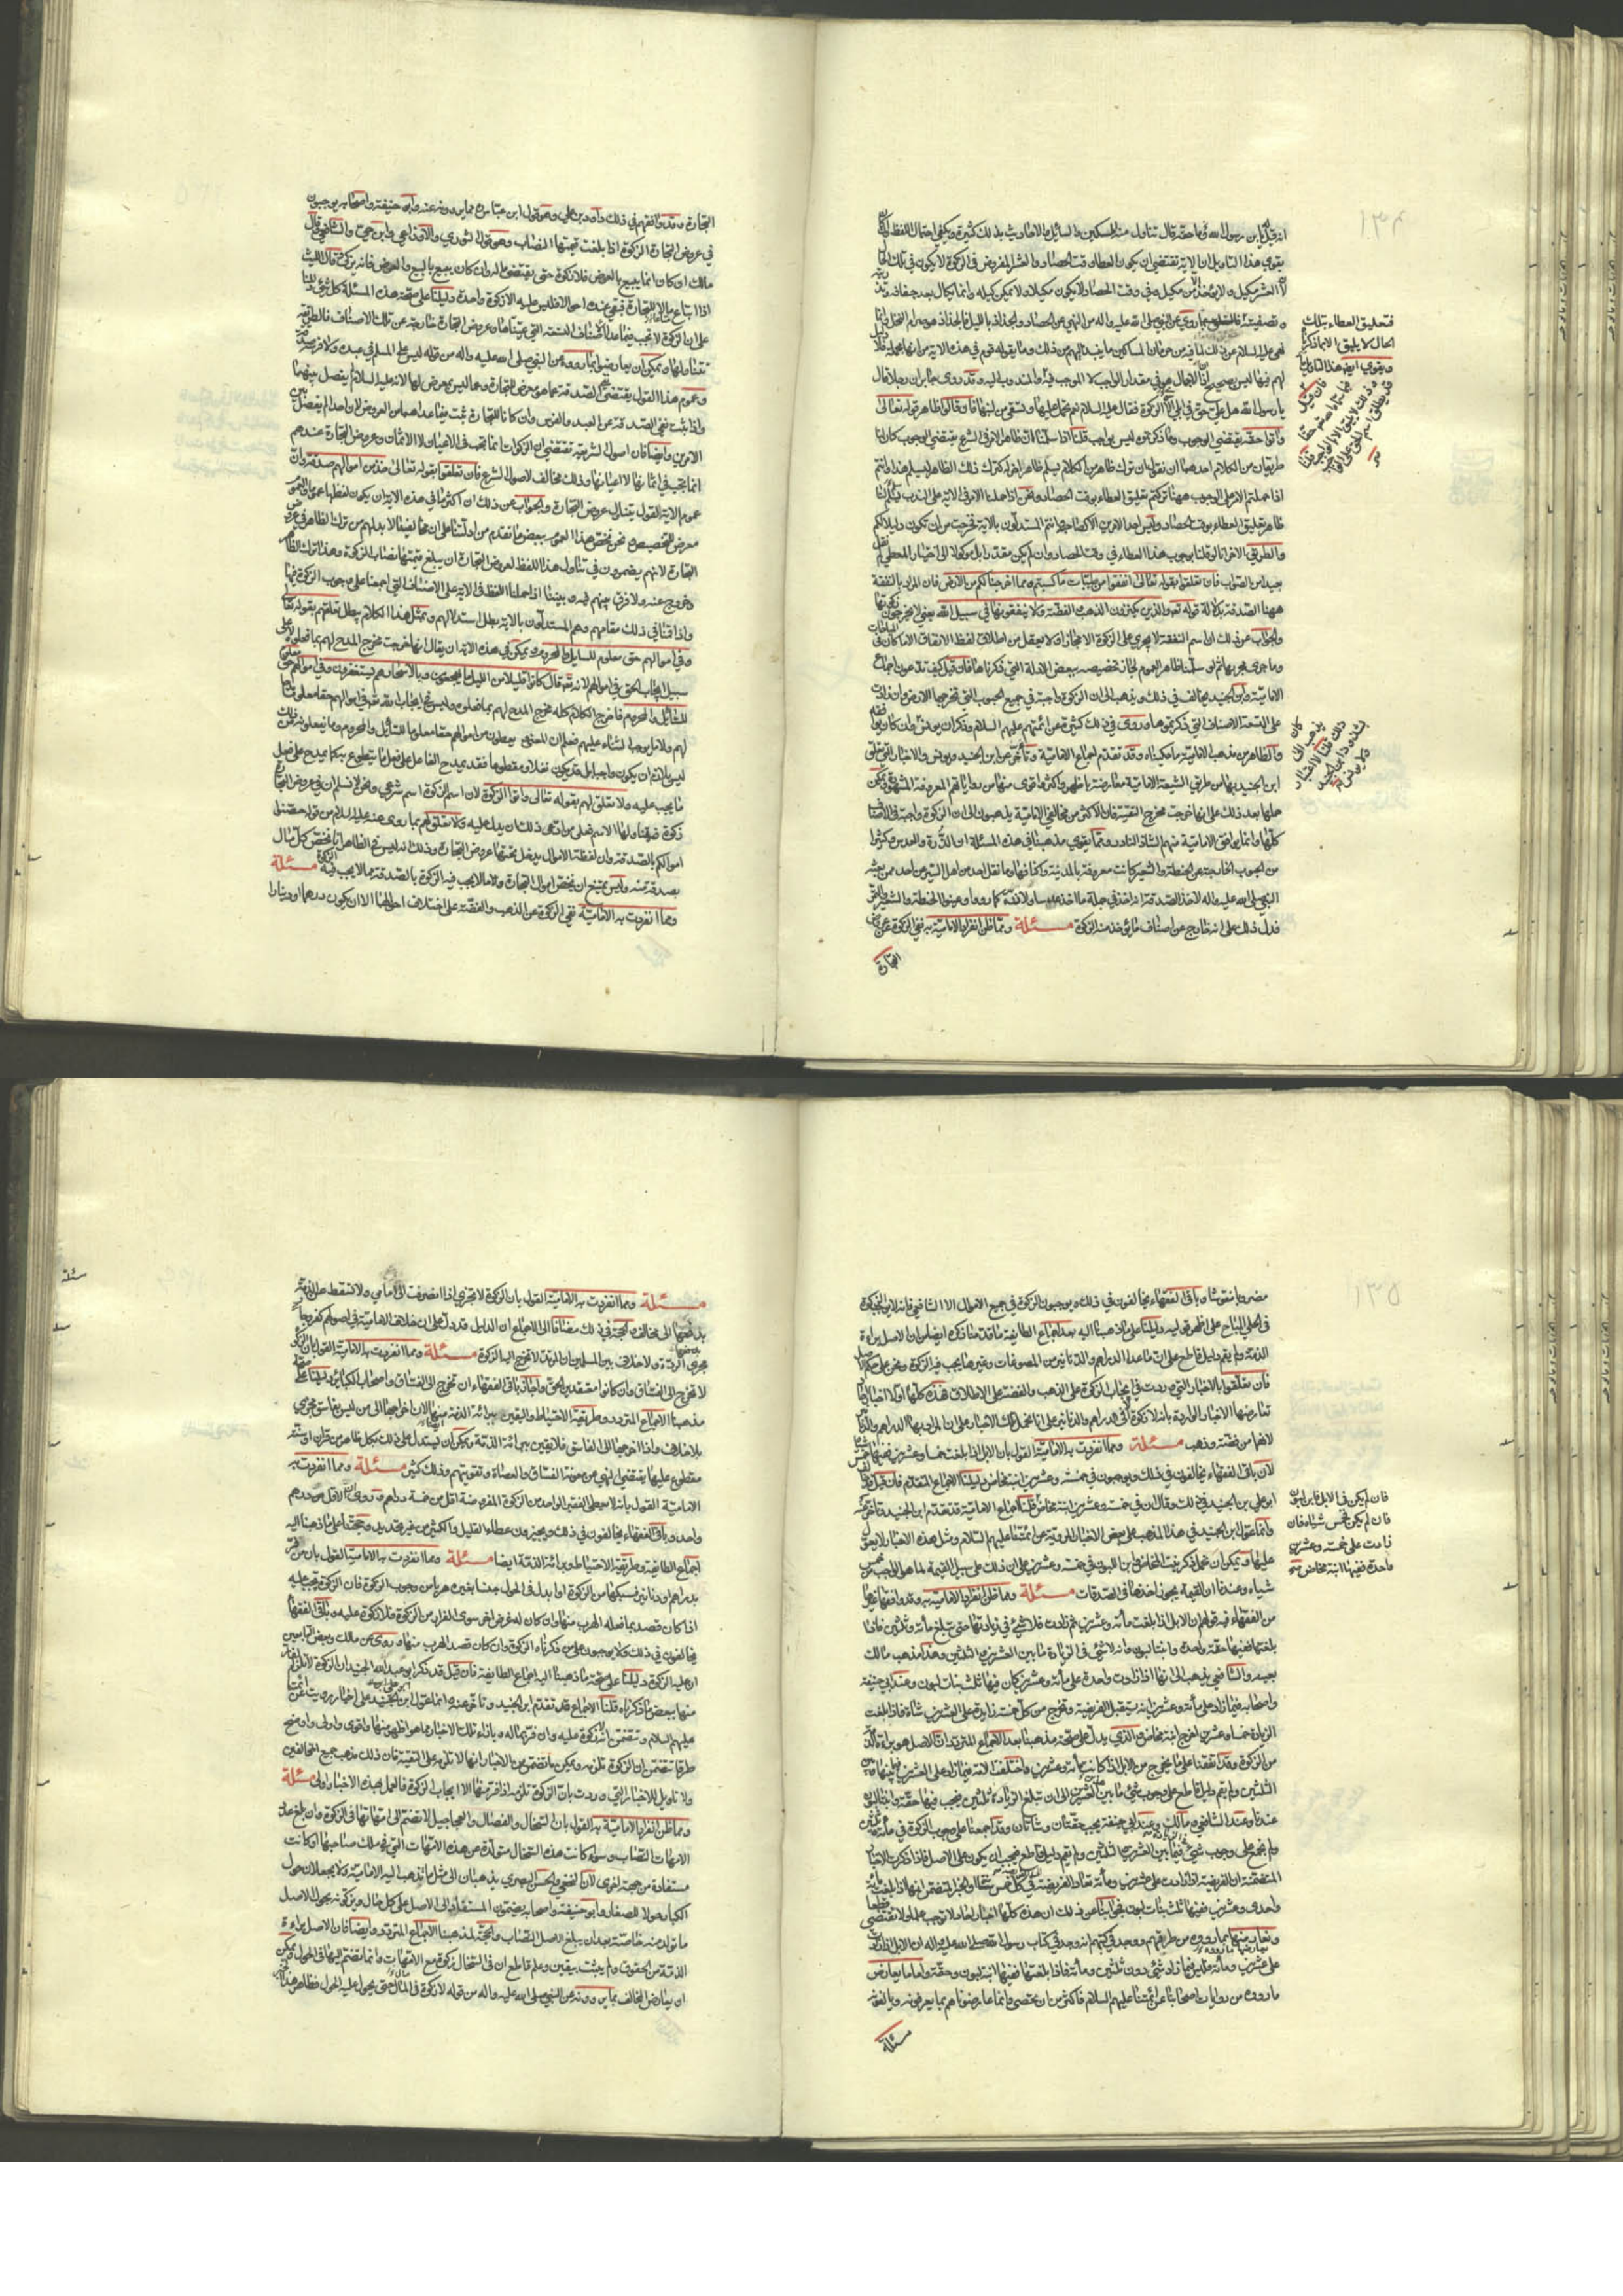 انه قيل يا ابن رسول الله وما حقه قال تناول منه المسكين والسائل والاحاديث بذلك كثيرة ويكفي احتمال اللفظ
يقوي هذا التاويل ان الاية تقتضي ان يكون العطاء وقت الحصاد والعشر المفروض في الزكوة لا يكون في تلك الحال
لان العشر مكيل ولا يؤخذ الا من مكيل وفي وقت الحصاد لا يكون مكيلا ولا يمكن كيله وانما يكال بعد جفافه
وتصفيته بما روي عن النبي صلى الله عليه واله من النهي عن الحصاد والجذاذ بالليل والجذاذ هو صرام النخل
نهى عليه السلام عن ذلك لما فيه من حرمان المساكين ما ينبذ اليهم من ذلك وما يقوله قوم في هذه الاية من انها مجملة فلا دليل
لهم فيها ليس بصحيح لان الاجمال هو في مقدار الواجب لا الموجب فيه
يا رسول الله هل علي حق في ابلي سوى الزكوة فقال عليه السلام نعم تحمل عليها وتسقي من لبنها فان قالوا ظاهر قوله تعالى
واتوا حقه يقتضي الوجوب وما ذكرتموه ليس بواجب قلنا اذا سلمنا ان ظاهر الامر في الشرع يقتضي الوجوب كان لنا
طريقان من الكلام احدهما ان نقول ان ترك ظاهر من الكلام ليسلم ظاهر اخر له كترك ذلك الظاهر ليسلم هذا وانتم
اذا حملتم الامر على الوجوب ههنا تركتم تعليق العطاء بوقت الحصاد ونحن اذا حملنا الامر في الاية على الندب سلم لنا
ظاهر تعليق العطاء بوقت الحصاد وليس احد الامرين الا كصاحبه وانتم المستدلون بالاية فخرجت من ان تكون دليلا لكم
والطريق الاخر انا لو قلنا بوجوب هذا العطاء في وقت الحصاد وان لم يكن مقدرا بل موكولا الى اختيار المعطي لم نقل
بعيدا من الصواب فان تعلقوا بقوله تعالى انفقوا من طيبات ما كسبتم ومما اخرجنا لكم من الارض فان المراد بالنفقة
ههنا الصدقة بدلالة قوله تعالى والذين يكنزون الذهب والفضة ولا ينفقونها في سبيل الله يعني لا يخرجون زكوتها
والجواب عن ذلك ان اسم النفقة لا يجري على الزكوة الا مجازا ولا يعقل من اطلاق لفظ الانفاق الا ما كان في المباحات
وما جرى مجراها ثم لو سلمنا ظاهر العموم لجاز تخصيصه ببعض الادلة التي ذكرناها فان قيل كيف تدعون اجماع
الامامية وابن الجنيد يخالف في ذلك ويذهب الى ان الزكوة واجبة في جميع الحبوب التي تخرجها الارض وان زادت
على التسعة الاصناف التي ذكرتموها وروى في ذلك كثيرة عن ائمتهم عليهم السلام وذكر ان يونس
والظاهر من مذهب الامامية ما حكيناه وقد تقدم اجماع الامامية وتأخر عن ابن الجنيد ويونس والاخبار التي تعلق
ابن الجنيد بها من طريق الشيعة الامامية معارضة باظهر واكثر واقوى منها من رواياتهم المعروفة المشهورة ويمكن
حملها بعد ذلك على انها خرجت مخرج التقية فان الاكثر من مخالفي الامامية يذهبون الى ان الزكوة واجبة في الاصناف
كلها وانما يوافق الامامية منهم الشاذ النادر ومما يقوي مذهبنا في هذه المسئلة ان الذرة والعدس وكثيرا
من الحبوب الخارجة عن الحنطة والشعير كانت معروفة بالمدينة واكنافها وما نقل احد من اهل السير عن احد ممن بعثه
النبي صلى الله عليه واله لاخذ الصدقة انه اخذ في جملة ما اخذ عدسا ولا ذرة كما رووا وعينوا الحنطة والشعير والتمر
فدل ذلك على انه خارج عن اصناف ما يؤخذ منه الزكوة مسئلة ومما ظن انفراد الامامية به نفي الزكوة عن عروض
التجارة
فتعليق العطاء بتلك
الحال لا يليق الا بما ذكرناه
ويقوي ايضا هذا التاويل
التجارة وقد وافقهم في ذلك داود بن علي وهو قول ابن عباس وابو حنيفة واصحابه يوجبون
في عروض التجارة الزكوة اذا بلغت قيمتها النصاب وهو قول الثوري والاوزاعي وابن حي والشافعي وقال
مالك ان كان انما يبيع بالعرض فلا زكوة حتى يقبض ماله وان كان يبيع بالعين والعرض فانه يزكي وقال الليث
اذا ابتاع مالا للتجارة فبقي عنده احوالا فليس عليه الا زكوة واحدة دليلنا على صحة هذه المسئلة كل شيء دللنا
على ان الزكوة لا تجب فيما عدا الاصناف التسعة التي عيناها وعروض التجارة خارجة عن تلك الاصناف
ويمكن ان يعارضوا بما رووه عن النبي صلى الله عليه واله من قوله ليس على المسلم في عبده ولا فرسه صدقة
وعموم هذا القول يقتضي نفي الصدقة عما هو معرض للتجارة وعما ليس بمعرض لها لانه عليه السلام لم يفصل بينهما
واذا ثبت نفي الصدقة عن العبد والفرس وان كانا للتجارة ثبت فيما عداهما من العروض لان احدا لم يفصل بين
الامرين وايضا فان اصول الشريعة تقتضي ان الزكوات انما تجب في الاعيان لا الاثمان وعروض التجارة عندهم
انما تجب في اثمانها لا اعيانها وذلك مخالف لاصول الشرع فان تعلقوا بقوله تعالى خذ من اموالهم صدقة وان
عموم الاية القول يتناول عروض التجارة والجواب عن ذلك ان اكثر ما في هذه الاية ان يكون لفظها عموما والعموم
معرض للتخصيص ونحن نخص هذا العموم ببعض ما تقدم من ادلتنا على ان مخالفينا لا بد لهم من ترك الظاهر في عروض
التجارة لانهم يضمرون في تناول هذا اللفظ لعروض التجارة ان يبلغ قيمتها نصاب الزكوة وهذا ترك للظاهر
وخروج عنه ولا فرق بينهم فيه وبيننا اذا حملنا اللفظ في الاية على الاصناف التي اجمعنا على وجوب الزكوة فيها
واذا قمنا في ذلك مقامهم وهم المستدلون بالاية بطل استدلالهم وبمثل هذا الكلام يبطل تعلقهم بقوله تعالى
وفي اموالهم حق معلوم للسايل والمحروم ويمكن في هذه الاية ان يقال انها خرجت مخرج المدح لهم بما فعلوه لا على
سبيل ايجاب الحق في اموالهم لانه تعالى قال كانوا قليلا من الليل ما يهجعون وبالاسحار هم يستغفرون وفي اموالهم حق معلوم
للسائل والمحروم فاخرج الكلام كله مخرج المدح لهم بما فعلوه وليس في ايجاب الله تعالى في اموالهم حقا معلوما مدح
لهم ولا ما يوجب الثناء عليهم فعلم ان المعنى يعطون من اموالهم حقا معلوما للسائل والمحروم وما يفعلونه من ذلك
ليس بلازم ان يكون واجبا بل قد يكون نفلا وتطوعا فقد يمدح الفاعل على فعل ما يتطوع به كما يمدح على فعل
ما يجب عليه ولا تعلق لهم بقوله تعالى واتوا الزكوة لان اسم الزكوة اسم شرعي ونحن لا نسلم ان في عروض التجارة
زكوة فيتناولها الاسم فعلى من ادعى ذلك ان يدل عليه ولا تعلق لهم بما روي عنه عليه السلام من قوله حصنوا
اموالكم بالصدقة وان لفظة الاموال يدخل تحتها عروض التجارة وذلك انه ليس في الظاهر انا نحصن كل مال
بصدقة منه وليس يمتنع ان نحصن اموال التجارة وما لا يجب فيه الزكوة بالصدقة مما لا يجب فيه الزكوة مسئلة
ومما انفردت به الامامية نفي الزكوة عن الذهب والفضة على اختلاف احوالهما الا ان يكون درهما او دينارا
مضروبا منقوشا وباقي الفقهاء يخالفون في ذلك ويوجبون الزكوة في جميع الاموال الا الشافعي فانه لا يرى الزكوة
في الحلي المباح على اظهر قوليه دليلنا على ما ذهبنا اليه بعد اجماع الطايفة ما قدمنا ذكره ايضا من ان الاصل براءة
الذمة ولم يقم دليل قاطع على ان ما عدا الدراهم والدنانير من المصوغات وغيرها يجب فيه الزكوة ونحن على حكم الاصل
فان تعلقوا بالاخبار التي وردت في ايجاب الزكوة على الذهب والفضة على الاطلاق فهذه كلها اولا اخبار احاد
تعارضها الاخبار الواردة بانه لا زكوة الا في الدراهم والدنانير على انا نحمل تلك الاخبار على ان المراد بها الدراهم والدنانير
لانهما من فضة وذهب مسئلة ومما انفردت به الامامية القول بان الابل اذا بلغت خمسا وعشرين ففيها خمس شياه
لان باقي الفقهاء يخالفون في ذلك ويوجبون في خمس وعشرين ابنة مخاض دليلنا الاجماع المتقدم فان قيل قد خالف
ابو علي بن الجنيد في ذلك وقال ان في خمس وعشرين ابنة مخاض قلنا اجماع الامامية قد تقدم ابن الجنيد وتأخر عنه
وانما عول ابن الجنيد في هذا المذهب على بعض الاخبار المروية عن ائمتنا عليهم السلام ومثل هذه الاخبار لا يعول
عليها ويمكن ان نحمل ذكر بنت المخاض وابن اللبون في خمس وعشرين على ان ذلك على سبيل القيمة لما هو الواجب من خمس
شياه وعندنا ان القيمة يجوز اخذها في الصدقات مسئلة ومما ظن انفراد الامامية به وقد وافقها غيرها
من الفقهاء فيه قولهم ان الابل اذا بلغت مأئة وعشرين ثم زادت فلا شيء في زيادتها حتى تبلغ مأئة وثلثين فاذا
بلغتها ففيها حقة واحدة وابنتا لبون وانه لا شيء في الزيادة ما بين العشرين الى الثلثين وهذا مذهب مالك
بعينه والشافعي يذهب الى انها اذا زادت واحدة على مأئة وعشرين كان فيها ثلث بنات لبون وعند ابي حنيفة
واصحابه فيما زاد على مأئة وعشرين انه يستقبل الفريضة وتخرج من كل خمس زايدة على العشرين شاة فاذا بلغت
الزيادة خمسا وعشرين اخرج ابنة مخاض والذي يدل على صحة مذهبنا بعد الاجماع المتردد ان الاصل هو براءة الذمة
من الزكوة وقد اتفقنا على ما يخرج من الابل اذا كانت مأئة وعشرين واختلفت الامة فيما زاد على العشرين فيما بينها وبين
الثلثين ولم يقم دليل قاطع على وجوب شيء ما بين العشرين الى ان تبلغ الزيادة ثلثين فيجب فيها حقة وابنتا لبون
عندنا وعند الشافعي ومالك وعند ابي حنيفة يجب حقتان وشاتان وقد اجمعنا على وجوب الزكوة في مأئة وثلثين
ولم نجمع على وجوب شيء فيما بين العشرين الى الثلثين ولم يقم دليل قاطع فيجب ان يكون على الاصل فاذا ذكرت الاخبار
المتضمنة ان الفريضة اذا زادت على عشرين ومأئة تعاد الفريضة في كل خمس شاة والخبر المتضمن انها اذا بلغت مأئة
واحدى وعشرين ففيها ثلث بنات لبون فجوابنا عن ذلك ان هذه كلها اخبار احاد لا توجب علما ولا تقتضي قطعا
ونعارضها بما رووه من طريقهم ووجد في كتبهم انه وجد في كتاب رسول الله صلى الله عليه واله ان الابل اذا زادت
على عشرين ومأئة فليس فيما زاد شيء دون ثلثين ومأئة فاذا بلغتها ففيها ابنتا لبون وحقة واما ما يعارض
ما رووه من روايات اصحابنا عن ائمتنا عليهم السلام فاكثر من ان يحصى وانما عارضناهم بما يعرفونه ويالفونه
مسئلة
فان لم يكن في الابل فابن لبون
فان لم يكن فخمس شياه فان
زادت على خمس وعشرين
واحدة ففيها ابنة مخاض
مسئلة ومما انفردت به الامامية القول بان الزكوة لا تجزي اذا انصرفت الى غير امامي ولا تسقط عن الذمة
بدفعها الى مخالف والحجة في ذلك مضافا الى الاجماع ان الدليل قد دل على ان خلاف الامامية في اصولهم كفر وجار
مجرى الردة ولا خلاف بين المسلمين ان المرتد لا تخرج اليه الزكوة مسئلة ومما انفردت به الامامية القول بان الزكوة
لا تخرج الى الفساق وان كانوا معتقدين الحق واجاز باقي الفقهاء ان تخرج الى الفساق واصحاب الكبائر دليلنا على صحة
مذهبنا الاجماع المتردد وطريقة الاحتياط واليقين ببرائة الذمة ايضا لان اخراجها الى من ليس بفاسق مجزي
بلا خلاف واذا اخرجها الى الفاسق فلا يقين ببرائة الذمة ويمكن ان يستدل على ذلك بكل ظاهر من قران او سنة
مقطوع عليها يقتضي النهي عن معونة الفساق والعصاة وتقويتهم وذلك كثير مسئلة ومما انفردت به
الامامية القول بانه لا يعطى الفقير الواحد من الزكوة المفروضة اقل من خمسة دراهم وروي ان الاقل من درهم
واحد وباقي الفقهاء يخالفون في ذلك ويجيزون عطاء القليل والكثير من غير تحديد وحجتنا على ما ذهبنا اليه
اجماع الطايفة وطريقة الاحتياط وبرائة الذمة ايضا مسئلة ومما انفردت به الامامية القول بان من فر
بدراهم او دنانير من الزكوة
اذا كان قصد بما فعله الهرب منها وان كان له غرض اخر سوى الفرار من الزكوة فلا زكوة عليه وباقي الفقهاء
يخالفون في ذلك ولا يوجبون على من ذكرناه الزكوة وان كان قصد الهرب منها وروي عن مالك وبعض التابعين
ان عليه الزكوة دليلنا على صحة ما ذهبنا اليه اجماع الطايفة فان قيل قد ذكر ابو علي بن الجنيد ان الزكوة لا تلزم الفار
منها ببعض ما ذكرناه قلنا الاجماع قد تقدم ابن الجنيد وتأخر عنه وانما عول ابن الجنيد على اخبار رويت عن ائمتنا
عليهم السلام وتتضمن انه لا زكوة عليه وان فر بماله وبازاء تلك الاخبار ما هو اظهر منها واقوى واولى واوضح
طرقا تتضمن ان الزكوة تلزمه ويمكن حمل ما تضمن من الاخبار انها لا تلزمه على التقية فان ذلك مذهب جميع المخالفين
ولا تاويل للاخبار التي وردت بان الزكوة تلزمه اذا فر منها الا ايجاب الزكوة فالعمل بهذه الاخبار اولى مسئلة
ومما ظن انفراد الامامية به القول بان السخال والفصال والعجاجيل لا تضم الى امهاتها في الزكوة وان بلغ عدد
الامهات النصاب وسواء كانت هذه السخال متولدة عن هذه الامهات التي في ملك صاحبها او كانت
مستفادة من جهة اخرى لان النخعي والحسن البصري يذهبان الى مثل ما يذهب اليه الامامية ولا يجعلان حول
الكبار حولا للصغار وابو حنيفة واصحابه يضمون المستفاد الى الاصل على كل حال ويزكونه بحول الاصل
ما تولد منه خاصة بعد ان يبلغ الاصل النصاب والحجة لمذهبنا الاجماع المتردد وايضا فان الاصل براءة
الذمة من الحقوق ولم يثبت بيقين وعلم قاطع ان في السخال زكوة مع الامهات وانما تضم اليها في الحول ويمكن
ان يعارض المخالف بما يروونه عن النبي صلى الله عليه واله من قوله لا زكوة في مال حتى يحول عليه الحول فظاهر هذا الخبر